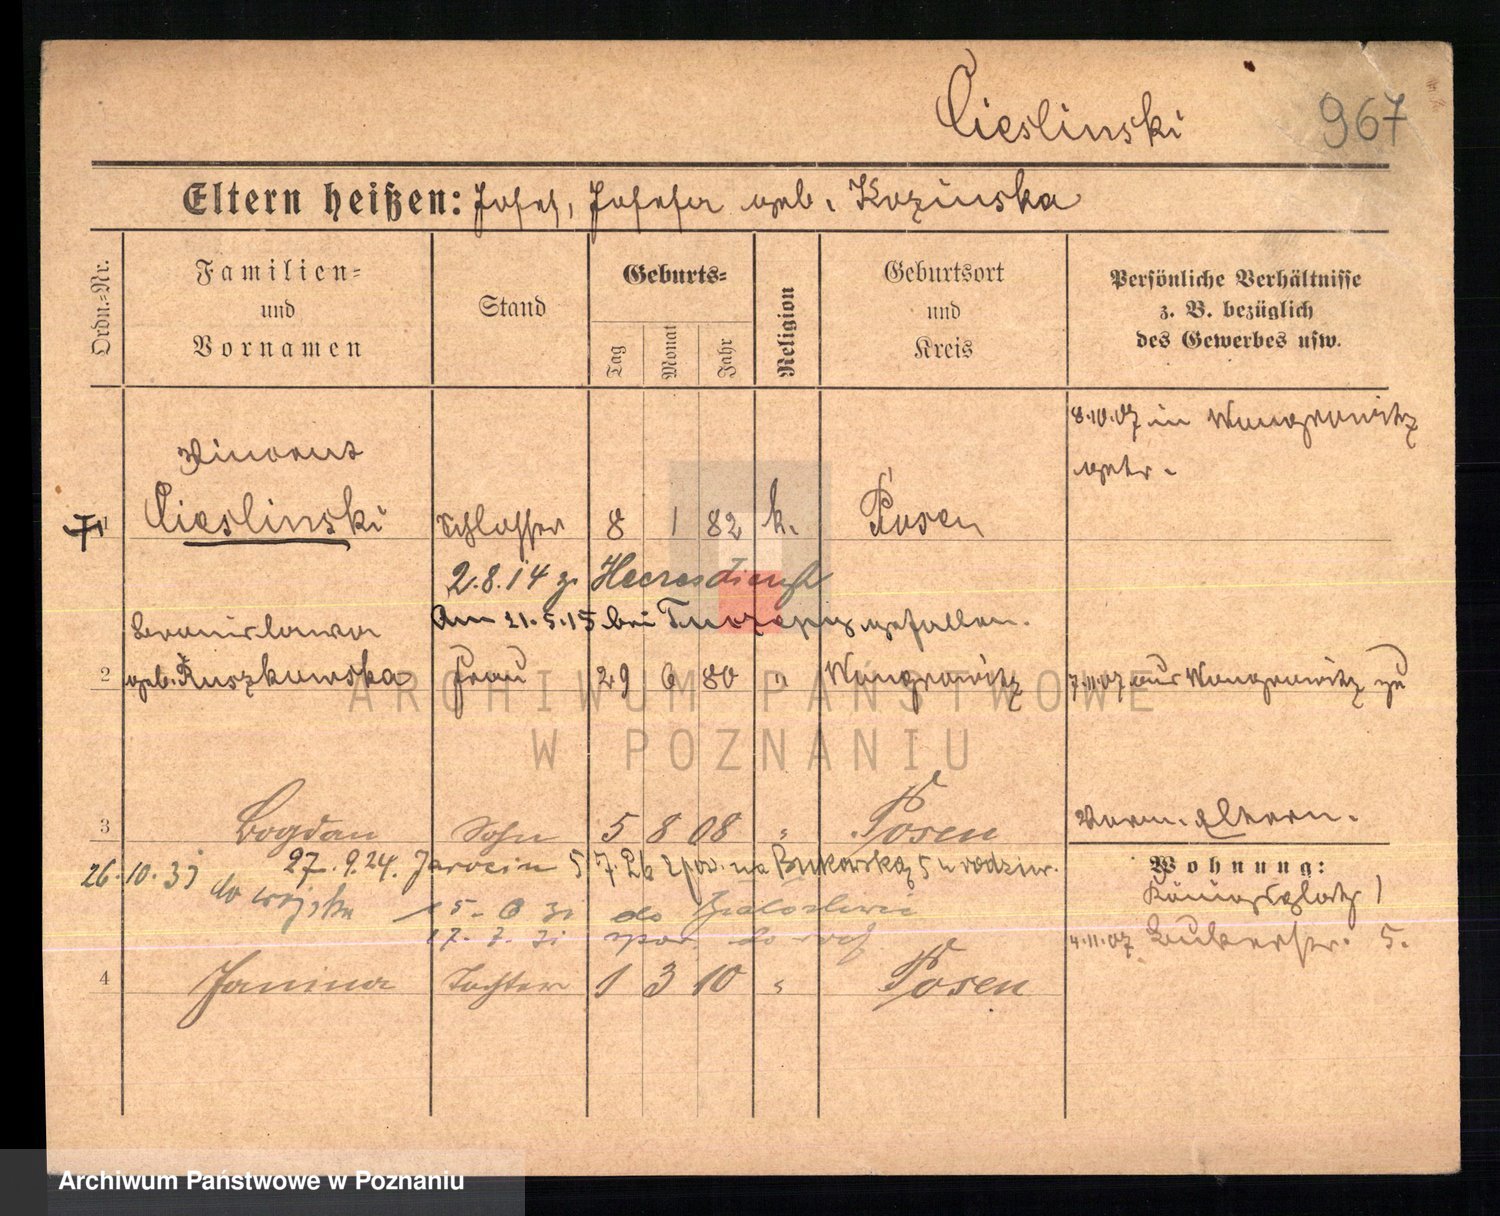 Cieslinski 967
Eltern heißen: Josef, Josefa geb. Kozinska
Ordn.-Nr.
Familien-
und
Vornamen
Stand
Geburts-
Tag
Monat
Jahr
Religion
Geburtsort
und
Kreis
Persönliche Verhältnisse
z. B. bezüglich
des Gewerbes usw.
8.10.07 in Wongrowitz
getr.
Vincent
1 Cieslinski Schlosser 8 1 82 k. Posen
2.8.14 z. Heeresdienst
Am 21.5.15 bei gefallen.
Bronislawa
2 geb. Ruszkowska Frau 29 6 80 " Wongrowitz 7.11.07 aus Wongrowitz zu
3 Bogdan Sohn 5 8 08 " Posen
Eltern.
26.10.33 27.9.24. Jarocin 5 7 26 z pow. na Bukowską 5 u rodzic.
do wojska 15-6 31 do
17.7.31 do
4 Janina Tochter 1 3 10 " Posen
Wohnung:
Königsplatz 1
4.11.07 Bukerstr. 5.
ARCHIWUM PAŃSTWOWE
W POZNANIU
Archiwum Państwowe w Poznaniu